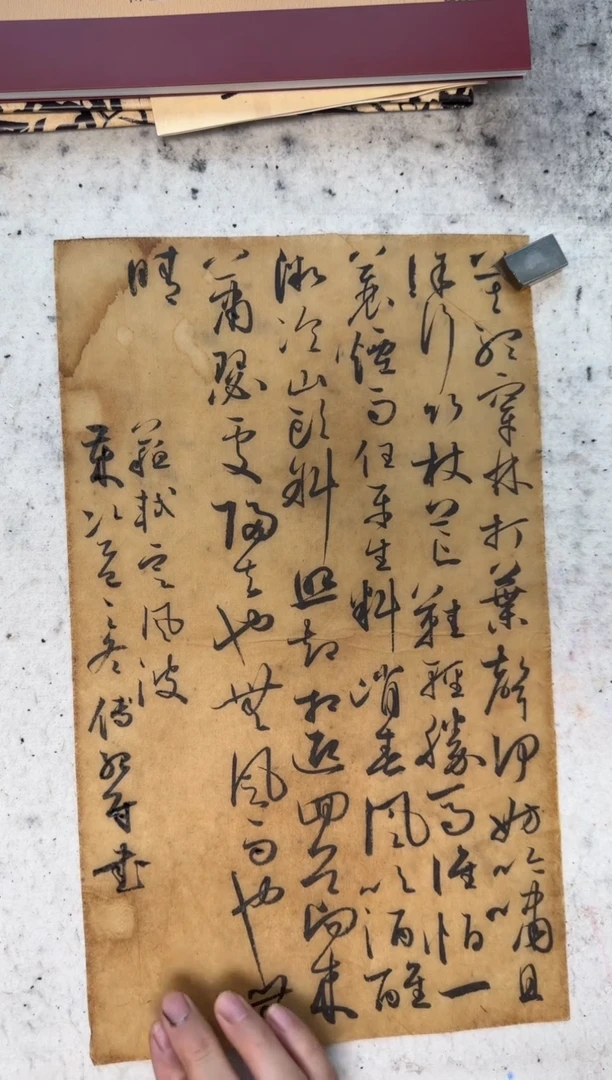 莫聽穿林打葉聲何妨吟嘯且
徐行竹杖芒鞋輕勝馬誰怕一
蓑煙雨任平生料峭春風吹酒醒
微冷山頭斜照却相迎回首向來
蕭瑟處歸去也無風雨也無
晴
蘇軾定風波
之冬傅書